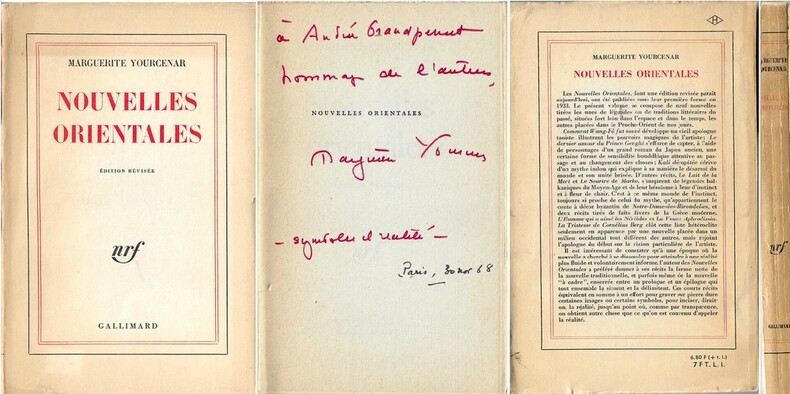 MARGUERITE YOURCENAR
NOUVELLES
ORIENTALES
ÉDITION RÉVISÉE
nrf
GALLIMARD
à André Grandpernet
hommage de l'auteur,
NOUVELLES ORIENTALES
Marguerite Yourcenar
- symboles et réalité -
Paris, 30 nov 68
MARGUERITE YOURCENAR
NOUVELLES ORIENTALES
Les Nouvelles Orientales, dont une édition revisée paraît
aujourd'hui, ont été publiées sous leur première forme en
1938. Le présent volume se compose de neuf nouvelles
tirées les unes de légendes ou de traditions littéraires du
passé, situées fort loin dans l'espace et dans le temps, les
autres placées dans le Proche-Orient de nos jours.
Comment Wang-Fô fut sauvé développe un vieil apologue
taoïste illustrant les pouvoirs magiques de l'artiste; Le
dernier amour du Prince Genghi s'efforce de capter, à l'aide
de personnages d'un grand roman du Japon ancien, une
certaine forme de sensibilité bouddhique attentive au passage
et au changement des choses; Kali décapitée s'écrire
d'un mythe indou qui explique à sa manière le désarroi du
monde et son unité brisée. D'autres récits, Le Lait de la
Mort et Le Sourire de Marko, s'inspirent de légendes balkaniques
du Moyen-Age et de leur héroïsme à fleur d'instinct
et à fleur de chair. C'est à ce même monde de l'instinct,
toujours si proche de celui du mythe, qu'appartiennent le
conte à décor byzantin de Notre-Dame-des-Hirondelles, et
deux récits tirés de faits divers de la Grèce moderne,
L'Homme qui a aimé les Néréides et La Veuve Aphrodissia.
La Tristesse de Cornélius Berg clôt cette liste hétéroclite
seulement en apparence par une nouvelle placée dans un
milieu oriental tout différent des autres, mais rejoint
l'apologue du début sur la vision particulière de l'artiste.
Il est intéressant de constater qu'à une époque où la
nouvelle a cherché à se dissoudre pour atteindre à une réalité
plus fluide et volontairement informe, l'auteur des Nouvelles
Orientales a préféré donner à ses récits la forme nette de
la nouvelle traditionnelle, et parfois même de la nouvelle
"à cadre", enserrée entre un prologue et un épilogue qui
tout ensemble la situent et la délimitent. Ces courts récits
équivalent en somme à un effort pour graver sur pierre dure
certaines images ou certains symboles, pour inciser, dirait-
on, la réalité, jusqu'au point où, comme par transparence,
on obtient autre chose que ce qu'on est convenu d'appeler
la réalité.
6,80 F (+ t. l.)
7 F T. L. I.
MARGUERITE
YOURCENAR
NOUVELLES
ORIENTALES
nrf
GALLIMARD